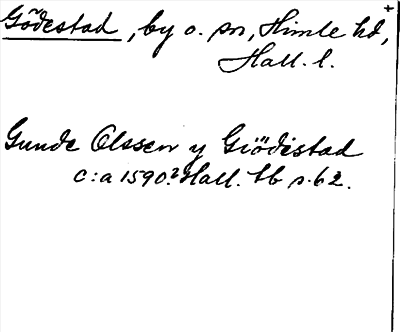 Gödestad, by o. sn, Himle hd,
Hall. l.
Gunde Olssen y Giödistad
c:a 1590? Hall. tb s. 62.